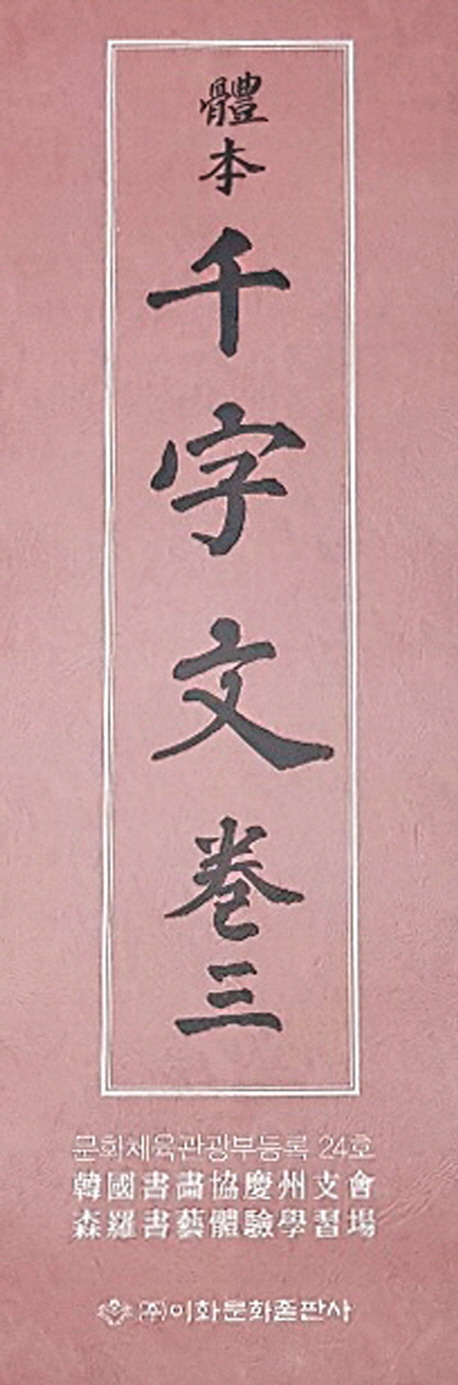 體本
千字文
卷三
문화체육관광부등록 24호
韓國書畵協慶州支會
森羅書藝體驗學習場
(주)이화문화출판사